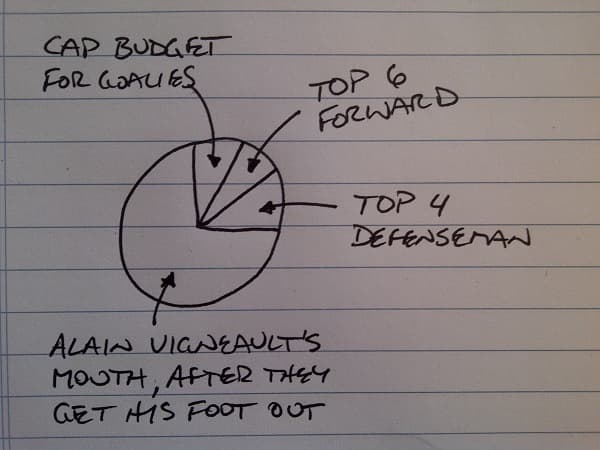 CAP BUDGET
FOR GOALIES
TOP 6
FORWARD
TOP 4
DEFENSEMAN
ALAIN VIGNEAULT'S
MOUTH, AFTER THEY
GET HIS FOOT OUT